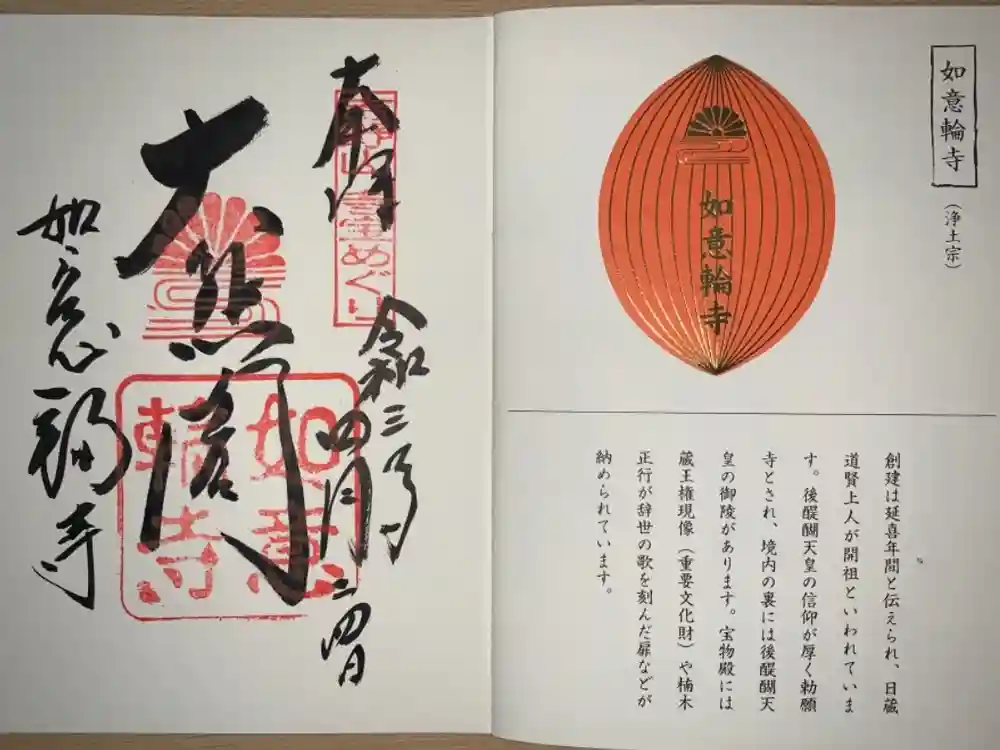 如意輪寺
（浄土宗）
如意輪寺
創建は延喜年間と伝えられ、日蔵
道賢上人が開祖といわれていま
す。後醍醐天皇の信仰が厚く勅願
寺とされ、境内の裏には後醍醐天
皇の御陵があります。宝物殿には
蔵王権現像（重要文化財）や楠木
正行が辞世の歌を刻んだ扉などが
納められています。
奉拝
霊めぐり
令和三年
四月二四日
如意
輪寺
如意輪寺